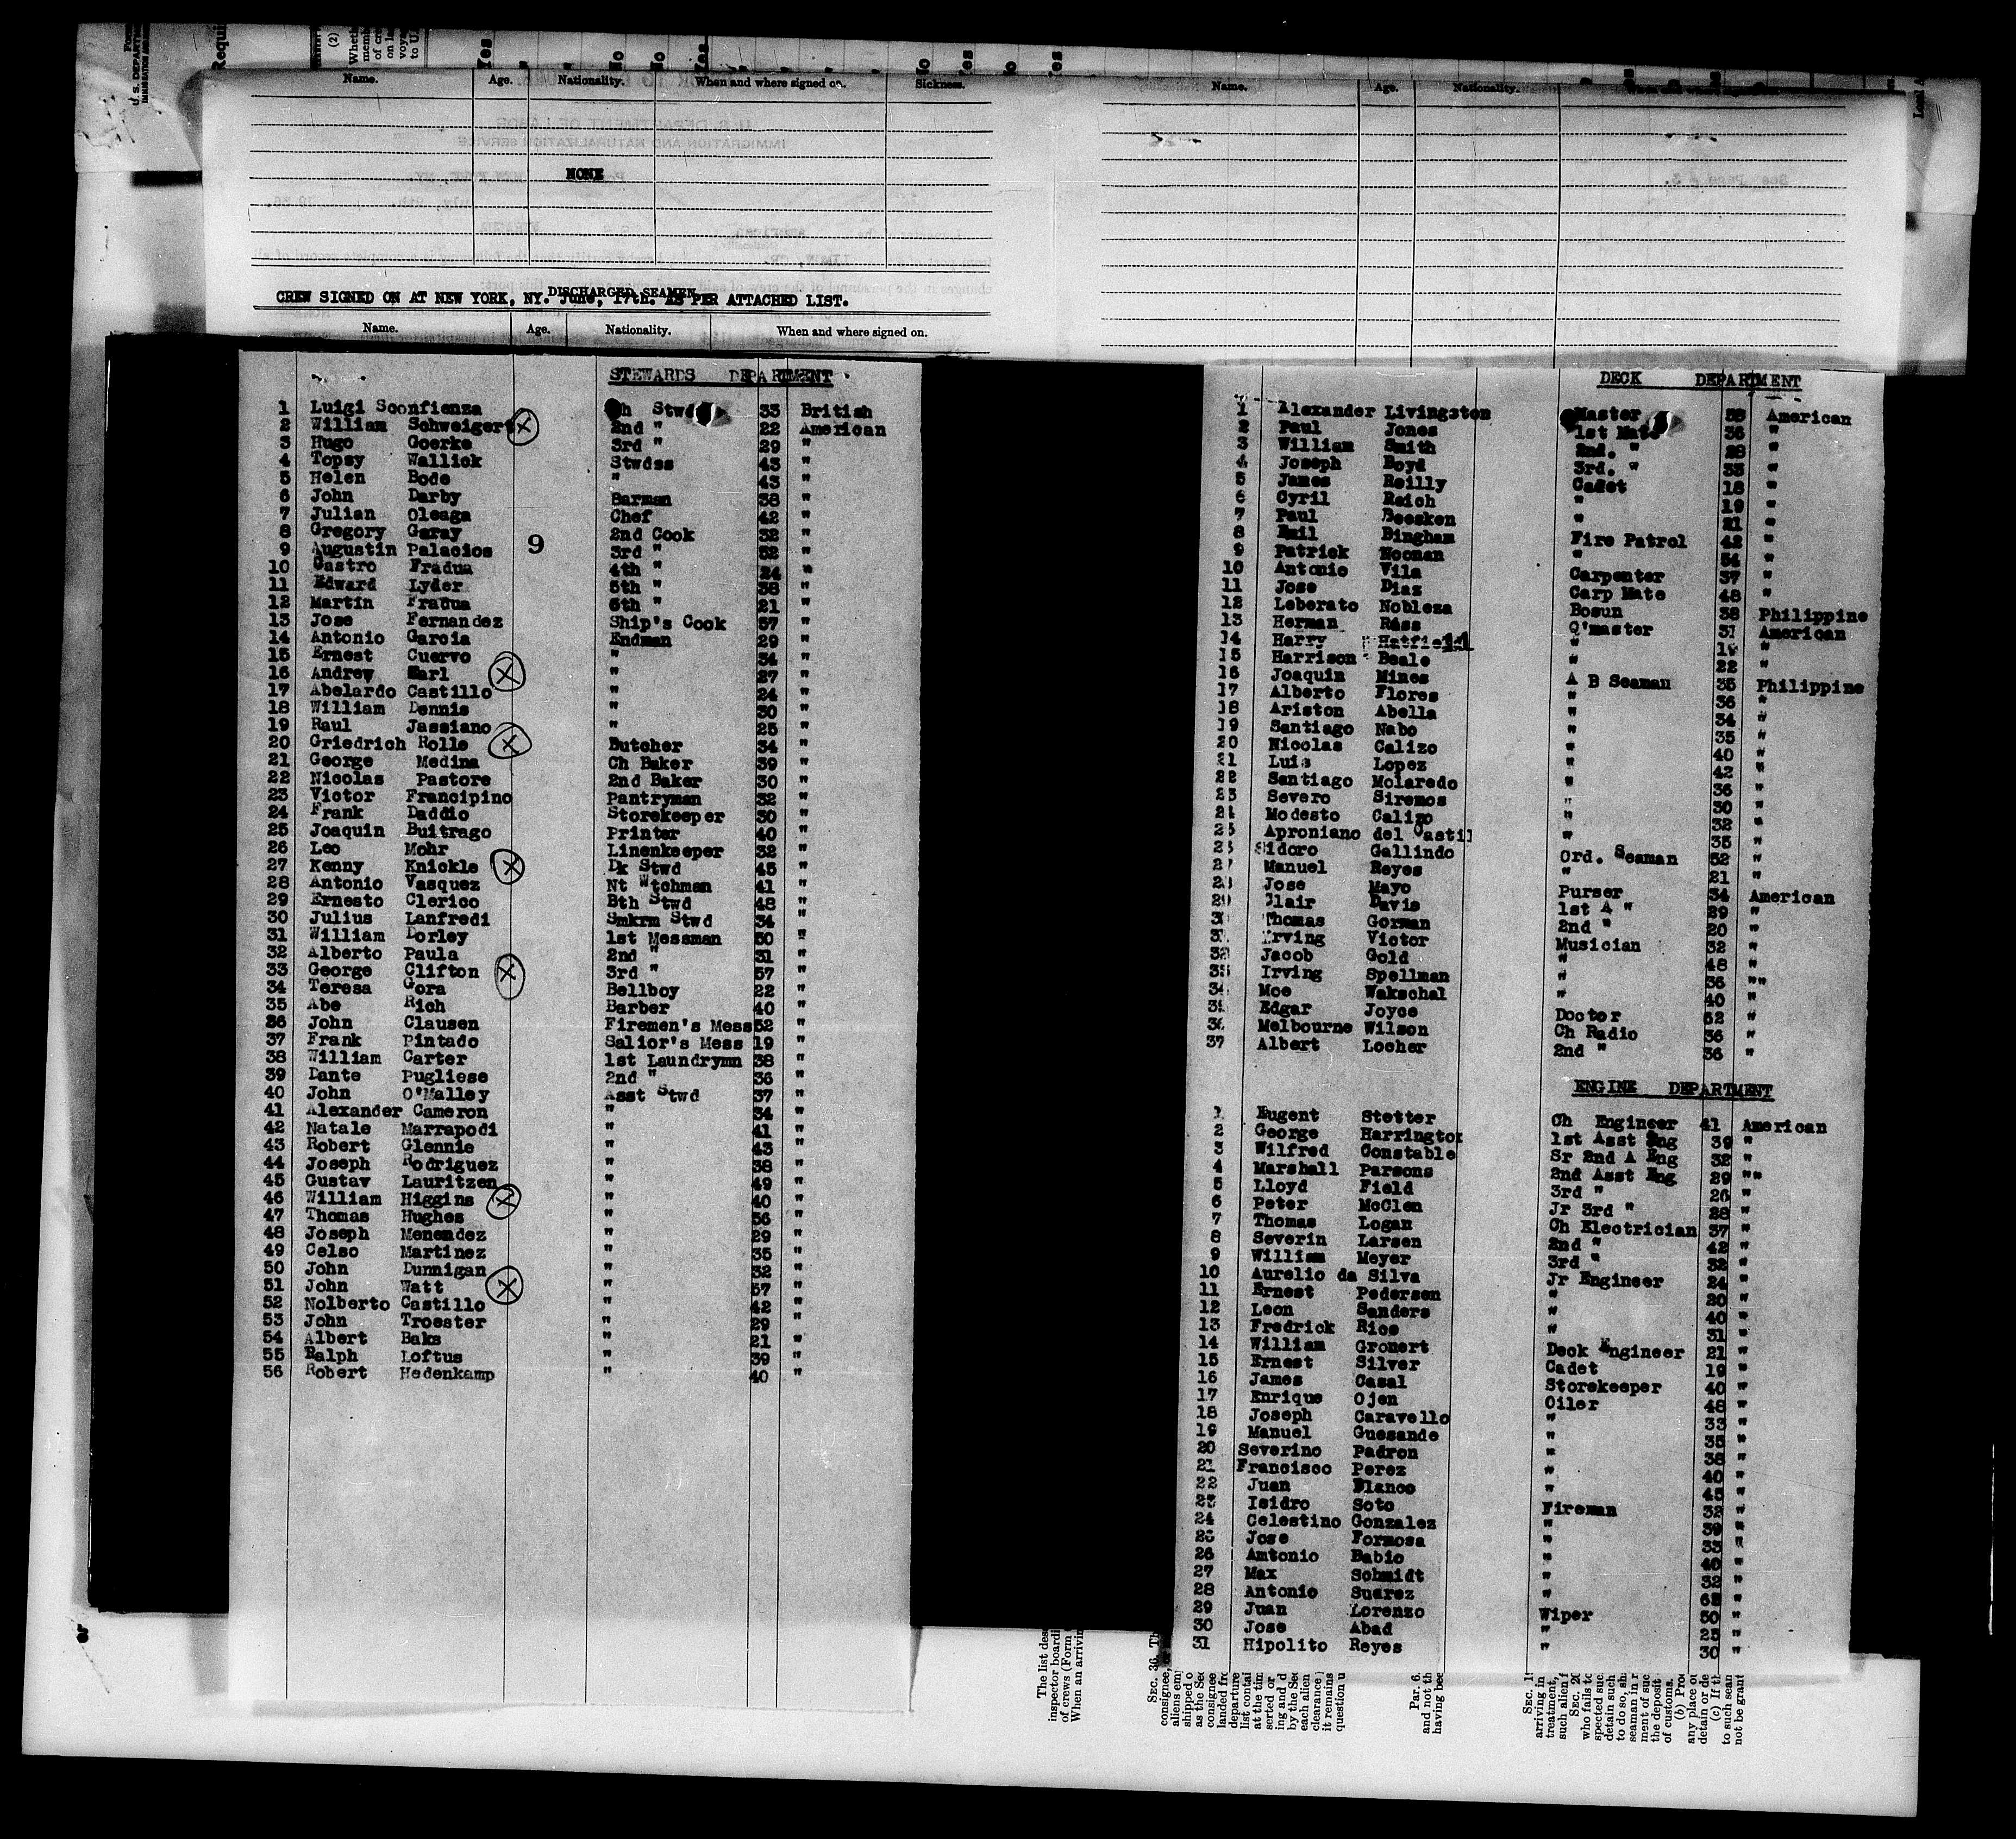 Name. Age. Nationality. When and where signed on. Sickness.
NONE
CREW SIGNED ON AT NEW YORK, NY. June, 17th. AS PER ATTACHED LIST.
DISCHARGED SEAMEN
Name. Age. Nationality. When and where signed on.
STEWARDS DEPARTMENT
1 Luigi Sconfienza Ch Stwd 33 British
2 William Schweigert 2nd " 22 American
3 Hugo Goerke 3rd " 29 "
4 Topsy Wallick Stwdss 43 "
5 Helen Bode " 43 "
6 John Darby Barman 38 "
7 Julian Oleaga Chef 42 "
8 Gregory Garay 2nd Cook 32 "
9 Augustin Palacios 9 3rd " 52 "
10 Castro Fradua 4th " 24 "
11 Edward Lyder 5th " 38 "
12 Martin Fradua 6th " 21 "
13 Jose Fernandez Ship's Cook 57 "
14 Antonio Garcia Endman 29 "
15 Ernest Cuervo " 34 "
16 Andrew Earl " 27 "
17 Abelardo Castillo " 24 "
18 William Dennis " 30 "
19 Raul Jassiano " 25 "
20 Griedrich Rolle Butcher 34 "
21 George Medina Ch Baker 39 "
22 Nicolas Pastore 2nd Baker 30 "
23 Victor Francipino Pantryman 32 "
24 Frank Daddio Storekeeper 30 "
25 Joaquin Buitrago Printer 40 "
26 Leo Mohr Linenkeeper 32 "
27 Kenny Knickle Dk Stwd 45 "
28 Antonio Vasquez Nt Wtchman 41 "
29 Ernesto Clerico Bth Stwd 48 "
30 Julius Lanfredi Smkrm Stwd 34 "
31 William Dorley 1st Messman 50 "
32 Alberto Paula 2nd " 31 "
33 George Clifton 3rd " 57 "
34 Teresa Gora Bellboy 22 "
35 Abe Rich Barber 40 "
36 John Clausen Firemen's Mess 52 "
37 Frank Pintado Salior's Mess 19 "
38 William Carter 1st Laundrymn 38 "
39 Dante Pugliese 2nd " 36 "
40 John O'Malley Asst Stwd 37 "
41 Alexander Cameron " 34 "
42 Natale Marrapodi " 41 "
43 Robert Glennie " 43 "
44 Joseph Rodriguez " 38 "
45 Gustav Lauritzen " 49 "
46 William Higgins " 40 "
47 Thomas Hughes " 56 "
48 Joseph Menendez " 29 "
49 Celso Martinez " 35 "
50 John Dunnigan " 32 "
51 John Watt " 57 "
52 Nolberto Castillo " 42 "
53 John Troester " 29 "
54 Albert Baks " 21 "
55 Ralph Loftus " 39 "
56 Robert Hedenkamp " 40 "
Name. Age. Nationality.
DECK DEPARTMENT
1 Alexander Livingston Master 38 American
2 Paul Jones 1st Mate 36 "
3 William Smith 2nd. " 28 "
4 Joseph Boyd 3rd. " 33 "
5 James Reilly Cadet 18 "
6 Cyril Reich " 19 "
7 Paul Deesken " 21 "
8 Emil Bingham Fire Patrol 42 "
9 Patrick Noonan " 54 "
10 Antonio Vila Carpenter 37 "
11 Jose Diaz Carp Mate 48 "
12 Leberato Nobleza Bosun 38 Philippine
13 Herman Rass Q'master 31 American
14 Harry Hatfield " 19 "
15 Harrison Beale " 22 "
16 Joaquin Mines A B Seaman 35 Philippine
17 Alberto Flores " 36 "
18 Ariston Abella " 34 "
19 Santiago Nabo " 35 "
20 Nicolas Calizo " 40 "
21 Luis Lopez " 42 "
22 Santiago Molaredo " 36 "
23 Severo Siremos " 30 "
24 Modesto Calizo " 32 "
25 Aproniano del Casti " 35 "
26 Sidoro Gallindo Ord. Seaman 52 "
27 Manuel Reyes " 21 "
28 Jose Mayo Purser 34 American
29 Clair Davis 1st A " 29 "
30 Thomas Gorman 2nd " 20 "
31 Irving Victor Musician 32 "
32 Jacob Gold " 48 "
33 Irving Spellman " 36 ""
34 Moe Wakschal " 40 "
35 Edgar Joyce Doctor 62 "
36 Melbourne Wilson Ch Radio 36 "
37 Albert Locher 2nd " 36 "
ENGINE DEPARTMENT
1 Eugent Stetter Ch Engineer 41 American
2 George Harrington 1st Asst Eng 39 "
3 Wilfred Constable Sr 2nd A Eng 32 "
4 Marshall Parsons 2nd Asst Eng 29 ""
5 Lloyd Field 3rd " 26 "
6 Peter McClen Jr 3rd " 28 "
7 Thomas Logan Ch Electrician 37 "
8 Severin Larsen 2nd " 42 "
9 William Meyer 3rd " 32 "
10 Aurelio da Silva Jr Engineer 24 "
11 Ernest Pedersen " 20 "
12 Leon Sanders " 40 "
13 Fredrick Rice " 31 "
14 William Gronert Deck Engineer 21 "
15 Ernest Silver Cadet 19 "
16 James Casal Storekeeper 40 "
17 Enrique Ojen Oiler 48 "
18 Joseph Caravello " 33 "
19 Manuel Guesande " 35 "
20 Severino Padron " 38 "
21 Francisco Perez " 40 "
22 Juan Blanco " 45 "
23 Isidro Soto Fireman 32 "
24 Celestino Gonzalez " 39 "
25 Jose Formosa " 33 "
26 Antonio Babio " 40 "
27 Max Schmidt " 32 "
28 Antonio Suarez "
29 Juan Lorenzo Wiper 50 "
30 Jose Abad " 25 "
31 Hipolito Reyes " 30 "